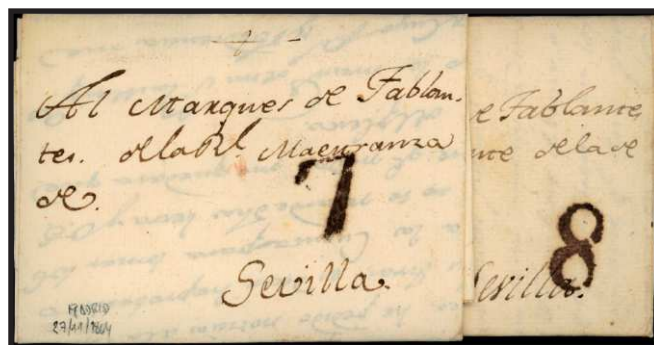 Al Marques de Tablan-
tes. de la Rl. Maestranza
de.
7
Sevilla.
MADRID
27/11/1804
e Tablantes
nte de la de
8
Sevilla.